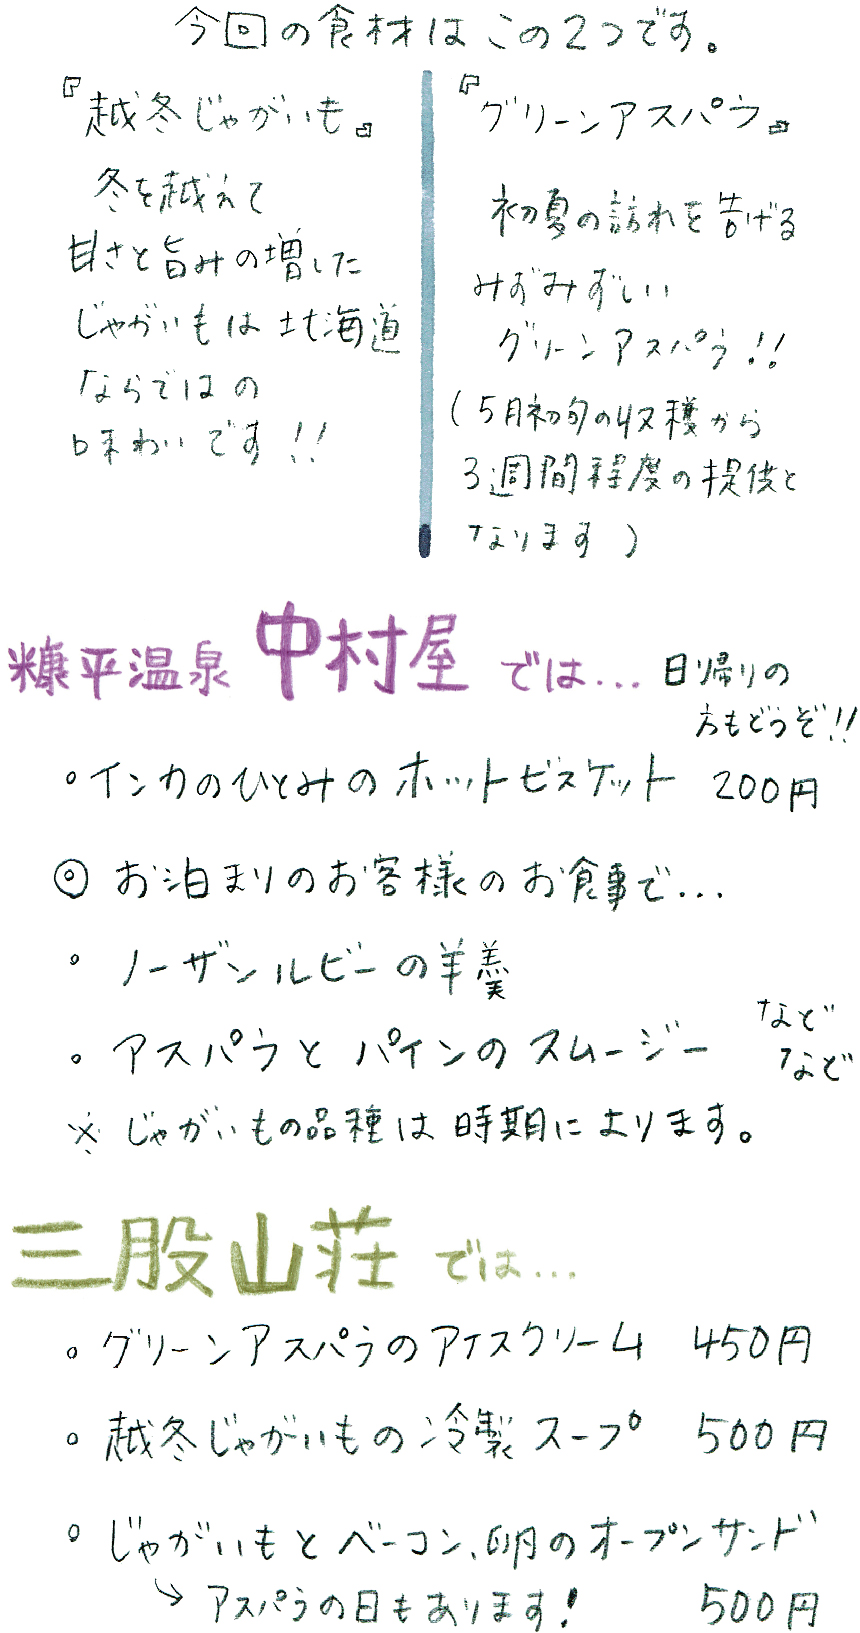 今回の食材はこの2つです。
『越冬じゃがいも』
冬を越えて
甘さと旨みの増した
じゃがいもは北海道
ならではの
味わいです!!
『グリーンアスパラ』
初夏の訪れを告げる
みずみずしい
グリーンアスパラ!!
(5月初旬の収穫から
3週間程度の提供と
なります)
糠平温泉 中村屋 では... 日帰りの
方もどうぞ!!
・インカのひとみのホットビスケット 200円
◎お泊まりのお客様のお食事で...
・ノーザンルビーの羊羹
・アスパラとパインのスムージー
などなど
※じゃがいもの品種は時期によります。
三股山荘 では...
・グリーンアスパラのアイスクリーム 450円
・越冬じゃがいもの冷製スープ 500円
・じゃがいもとベーコン、卵のオープンサンド
↳アスパラの日もあります! 500円